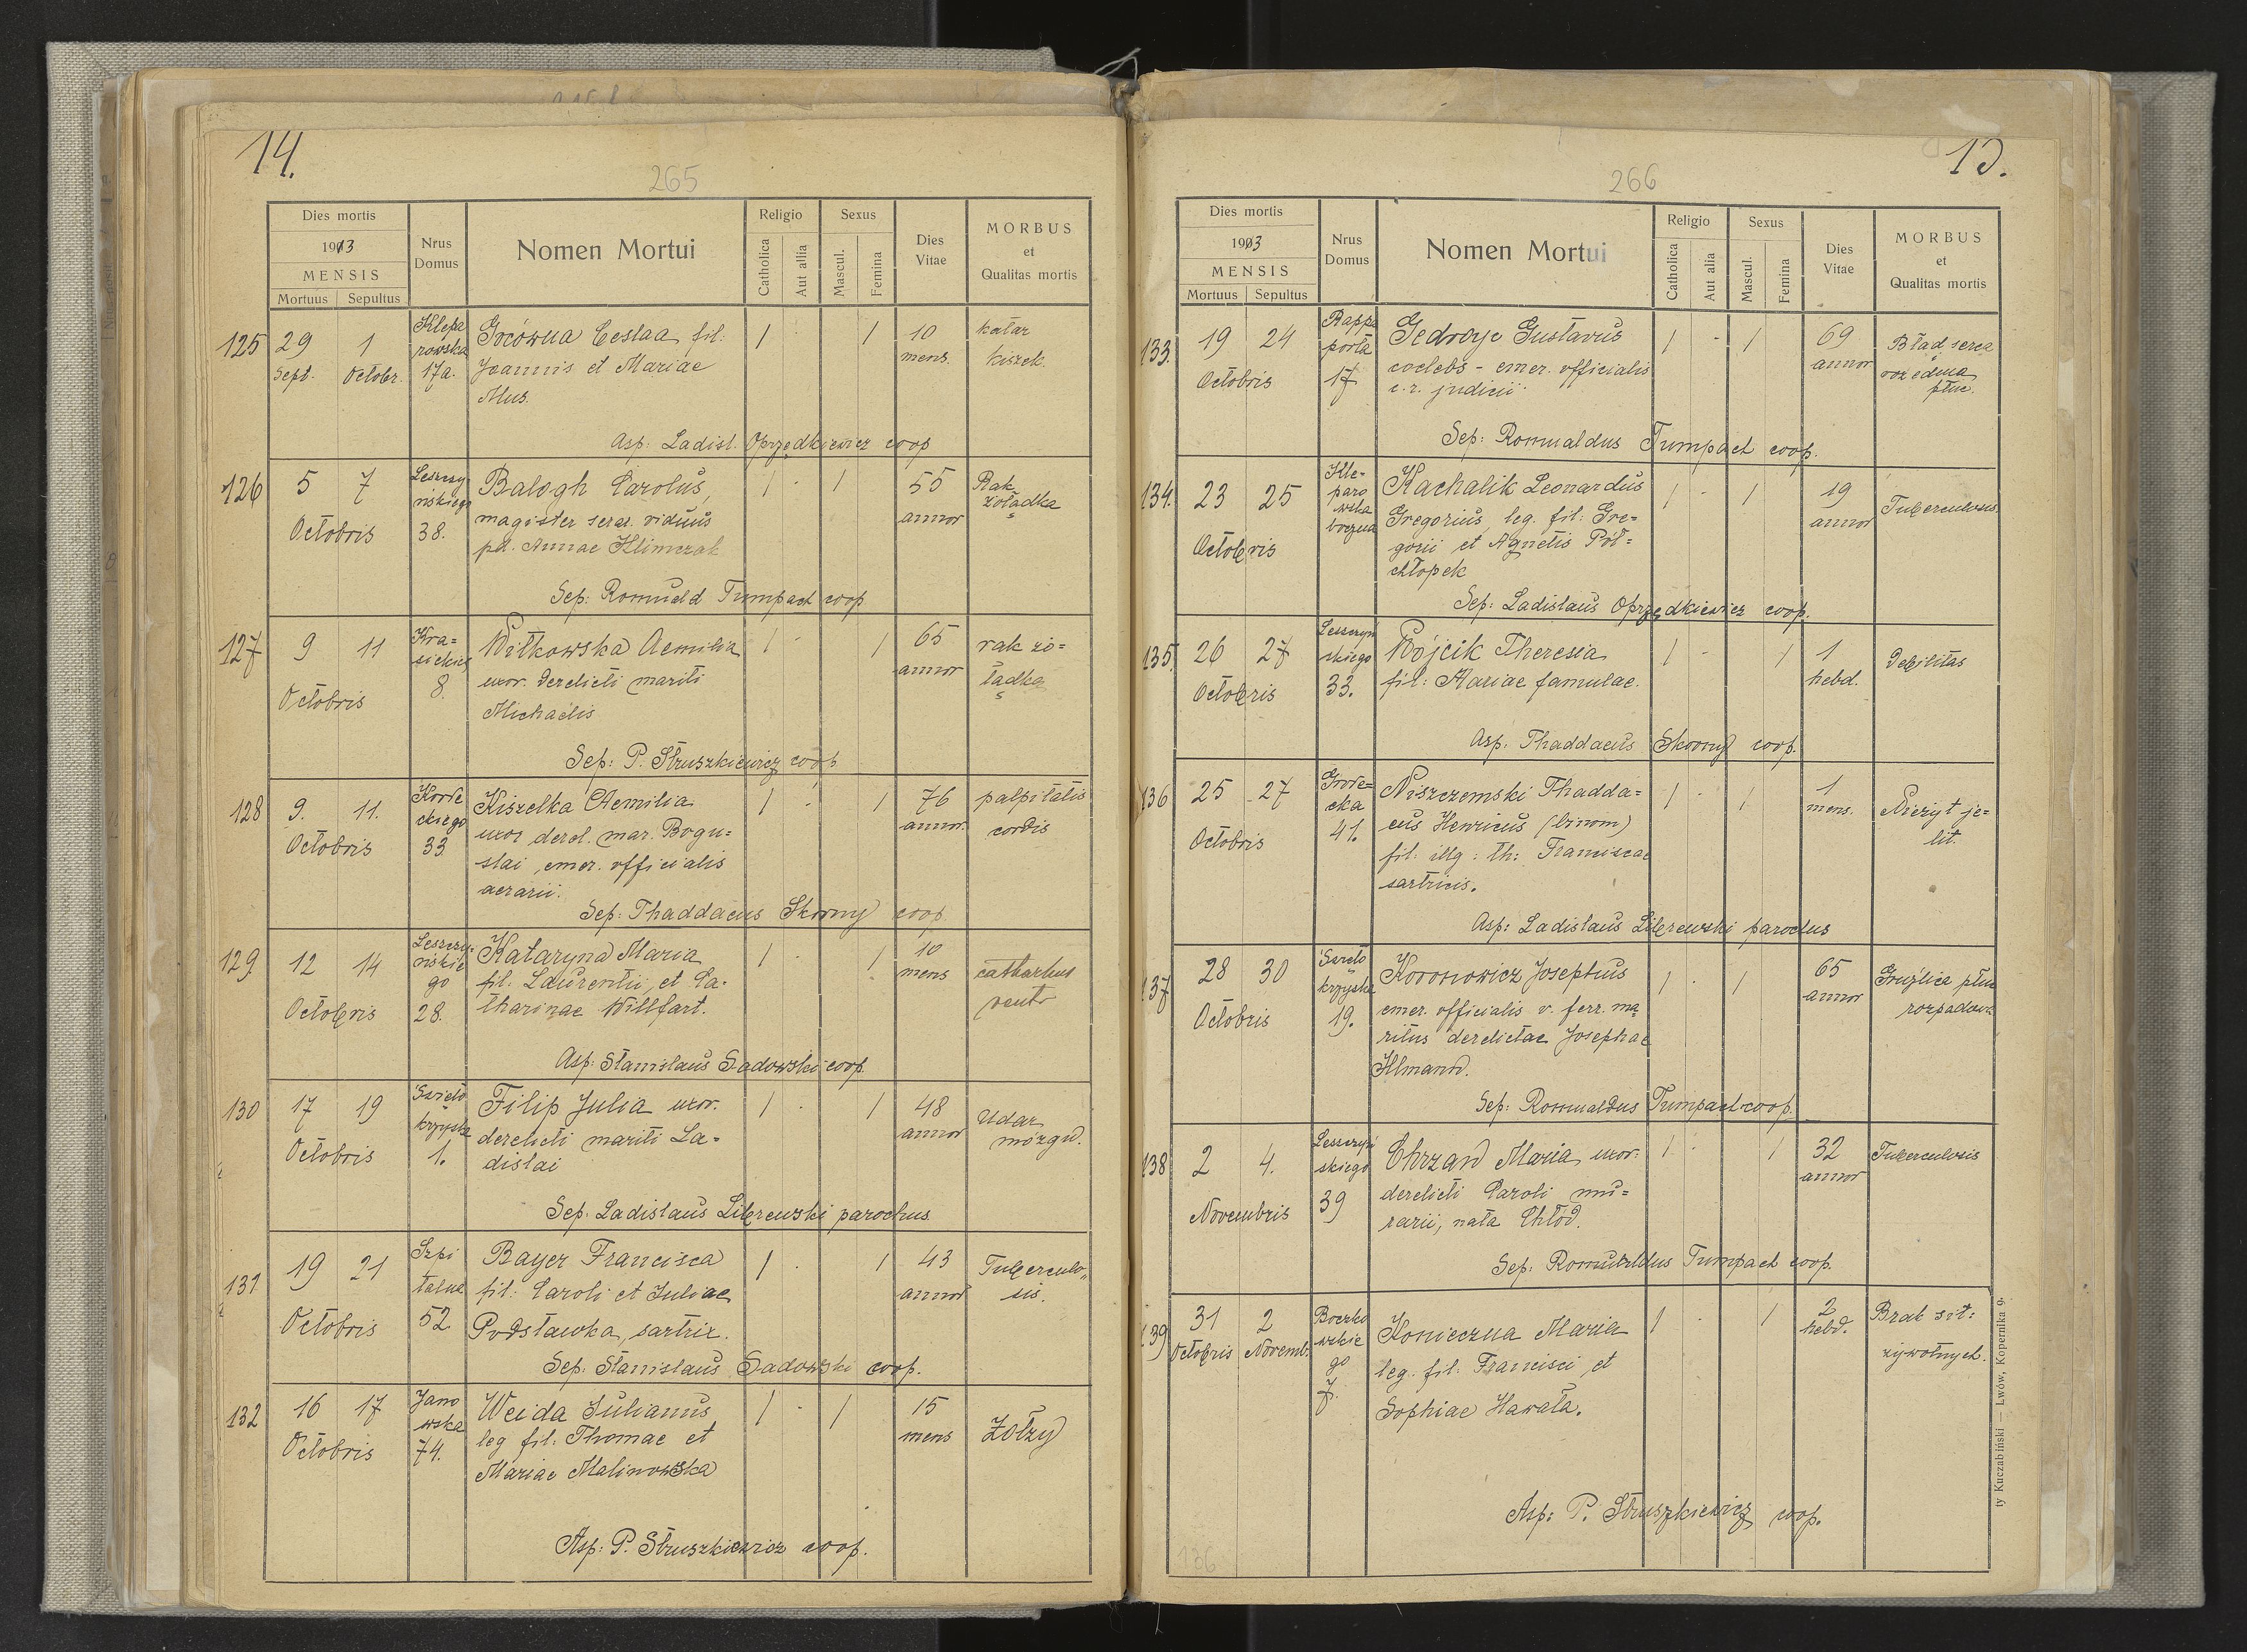 14.
265
Dies mortis
1913
MENSIS
Mortuus Sepultus
Nrus Domus
Nomen Mortui
Religio
Catholica
Aut allia
Sexus
Mascul.
Femina
Dies Vitae
MORBUS
et
Qualitas mortis
125 29 1 Klepa Ceslaa fil: 1 1 10 katar
Sept. Octobr. rowska 17a. Joannis et Mariae mens. kiszek.
Mus.
Asp: Ladisl. Oprzędkiewicz coop
126 5 7 Leszczy Balogh Carolus, 1 - 1 55 Rak
Octobris ńskiego magister serar. viduus annor żołądka
38. pd. Annae Klimczak
Sep: Romuald Tumpach coop
127 9 11 Kra= Witkowska Aemilia 1 - 1 65 rak żo=
Octobris sickiego uxor. derelicti mariti annor łądka
8. Michaelis
Sep: P. Struszkiewicz coop
128 9. 11. Korde Kiszelka Aemilia 1 - 1 76 palpitatis
Octobris ckiego uxor derel. mar. Bogu= annor. cordis
33 slai, emer. officialis
aerarii.
Sep: Thaddaeus Skorny coop.
129 12 14 Leszczy= Kataryna Maria 1 - 1 10
Octobris ńskie fil. Laurentii, et Ca= mens catharhus
go tharinae Willfart. ventr
28.
Asp: Stanislaus Sadowski coop.
130 17 19 Święto Filip Julia uxor. 1 - 1 48 Udar
Octobris krzyska derelicti mariti La= annor mózgu.
1. dislai
Sep. Ladislaus Librewski parochus.
131 19 21 Szpi Bayer Francisca 1 - 1 43 Tuberculo„
Octobris talna fil: Caroli et Juliae annor sis.
52 Podstawka, sartrix.
Sep: Stanislaus Sadowski coop.
132 16 17 Jano Weida Julianus 1 - 1 15
Octobris wska leg fil: Thomae et mens Zołzy
74. Mariae Malinowska
Asp: P. Struszkiewicz coop.
15.
266
Dies mortis
1913
MENSIS
Mortuus Sepultus
Nrus Domus
Nomen Mortui
Religio
Catholica
Aut alia
Sexus
Mascul.
Femina
Dies Vitae
MORBUS
et
Qualitas mortis
133. 19 24 Rappa Gedroyc Gustavus 1 - 1 69 Bład serca
Octobris porta coelebs - emer. officialis annor rozedma
17 c.r. judicii płuc.
Sep: Romualdus Tumpach coop.
134. 23 25 Kle= Kachalik Leonardus 1 - 1 19 Tuberculosis
Octobris paro Gregorius, leg. fil: Gre= annor
wska gorii et Agnetis Pół=
boczna chłopek
Sep: Ladislaus Oprzędkiewicz coop.
135. 26 27 Leszczyń Wójcik Theresia 1 - 1 1 Debilitas
Octobris skiego fil: Mariae famulae. hebd.
33.
Asp: Thaddaeus Skorny coop.
136 25 27 Grode= Niszczemski Thadda= 1 - 1 1
Octobris cka eus Henricus (binom) mens. Nieżyt je=
41. fil: illg: th: Franciscae lit.
sartricis.
Asp: Ladislaus Librewski parochus
137 28 30 Święto Koronowicz Josephus 1 - 1 65 Gruźlica płuc
Octobris krzyska emer. officialis v. ferr. ma= annor rozpadowa
19. ritus derelictae Josephae
Sep: Romualdus Tumpach coop.
138 2 4. Leszczyń Chrzan Maria uxor. 1 - 1 32 Tuberculosis
Novembris skiego derelicti Caroli mu= annor
39 rarii, nata Chłód.
Sep: Romualdus Tumpach coop.
139 31 2 Boczko Konieczna Maria 1 - 1 2 Brak sił:
Octobris Novemb. wskie leg. fil: Francisci et hebd. żywotnych.
go Sophiae Hawała.
7.
Asp: P. Struszkiewicz coop.
136
ty Kuczabiński — Lwów, Kopernika 9.